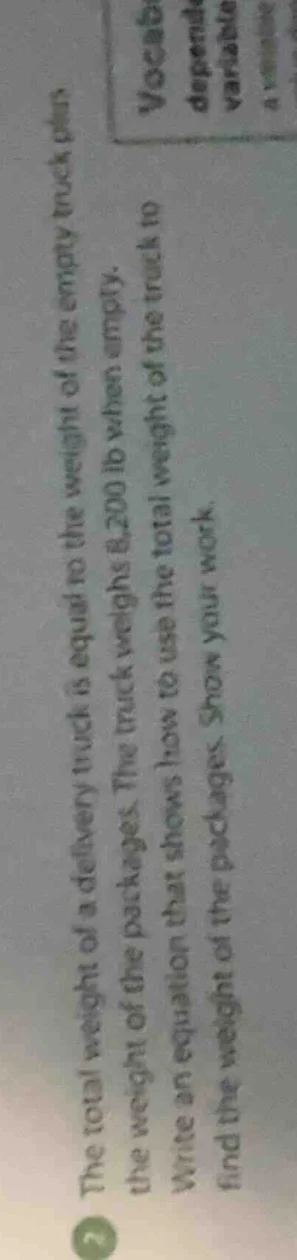 2 The total weight of a delivery truck is equal to the weight of the empty truck plus
the weight of the packages. The truck weighs 8,200 lb when empty.
Write an equation that shows how to use the total weight of the truck to
find the weight of the packages. Show your work.
Vocab
depende
variable
a variable